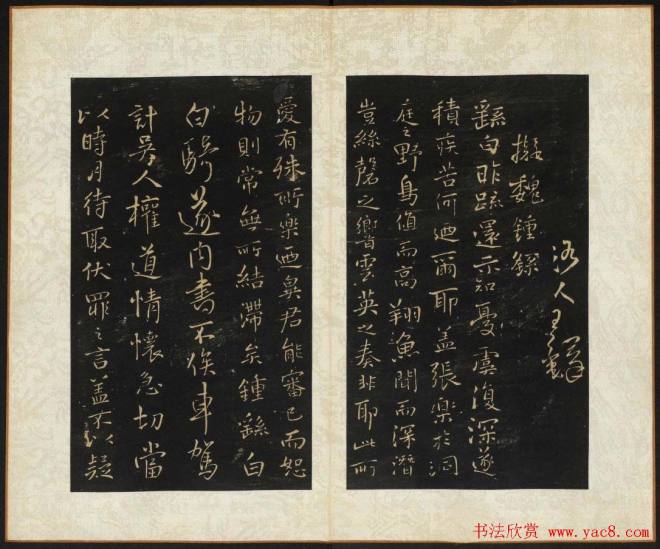 洛人王鐸
擬魏鍾繇
繇白昨疏還示知憂虞復深遂
積疾苦何迺爾耶蓋張樂於洞
庭之野鳥值而高翔魚聞而深潛
豈絲磬之響雲英之奏非耶此所
愛有殊所樂迺異君能審己而恕
物則常無所結滯矣鍾繇白
白騎遂內書不俟車駕
計吳人權道情懷急切當
以時月待取伏罪之言蓋不以疑
书法欣赏 www.yac8.com